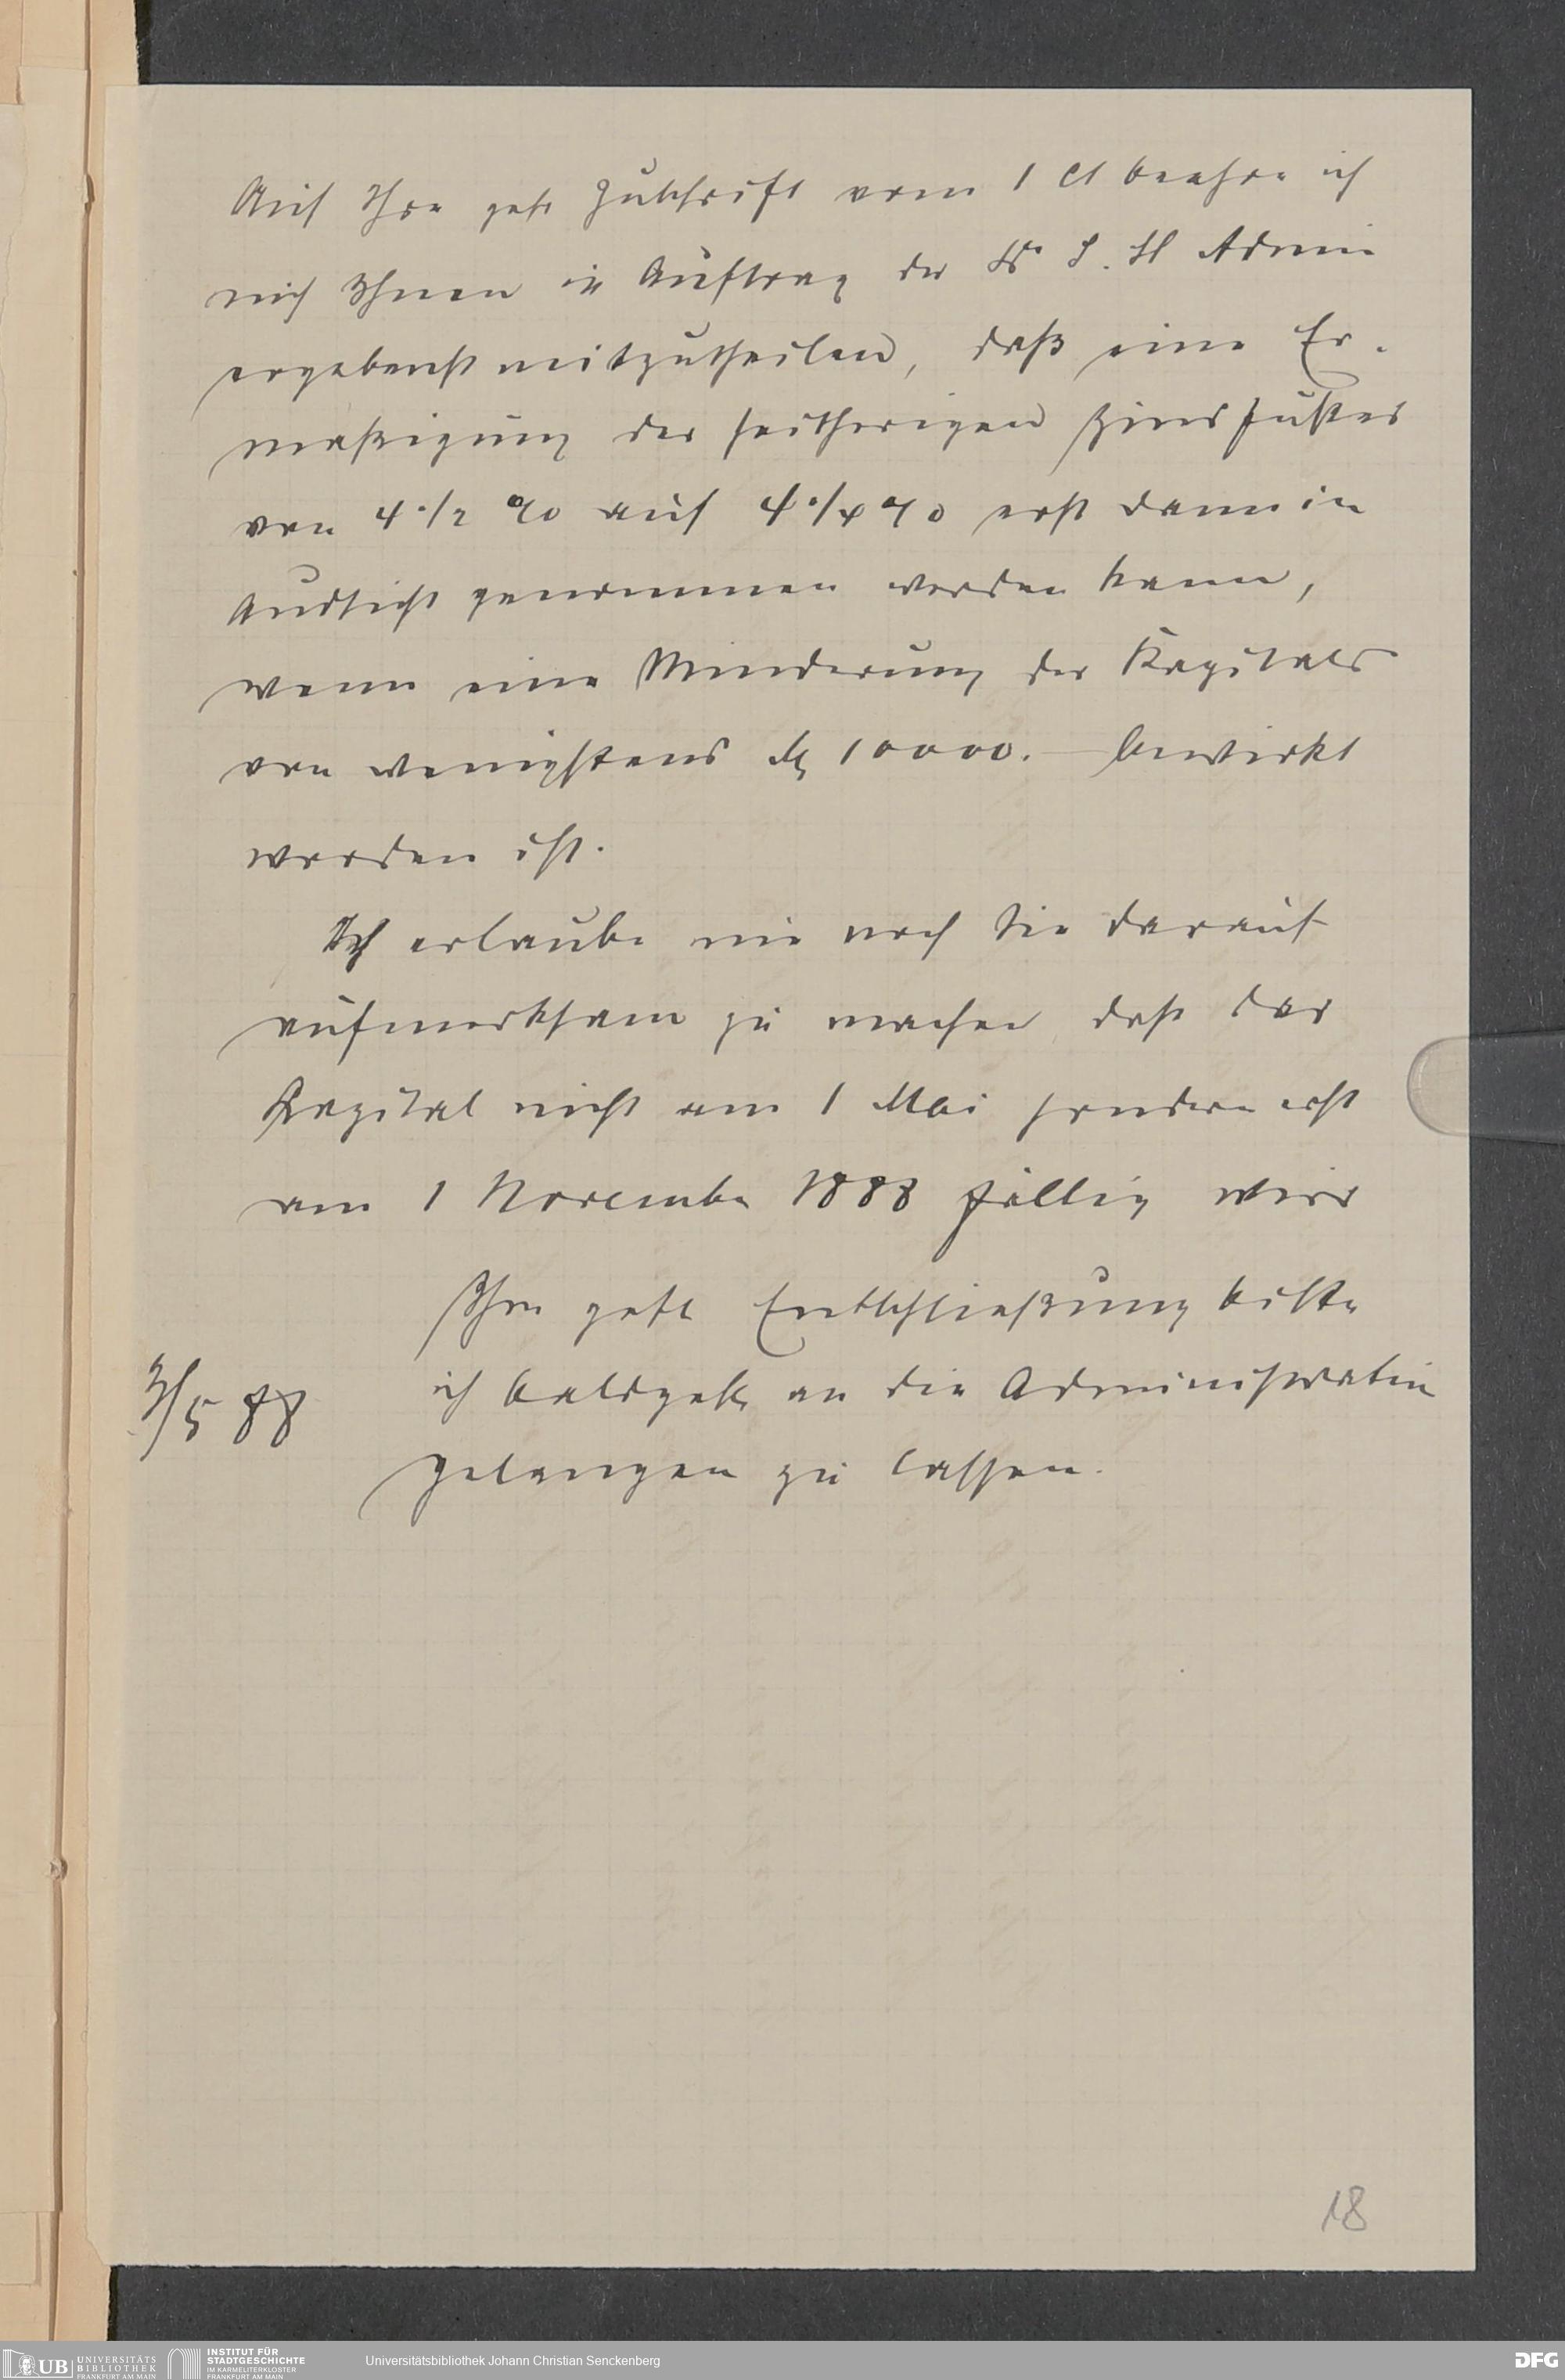 Auf Ihre gefl Zuschrift vom 1 ct beehre ich
mich Ihnen im Auftrag der Dr S. H Admin
ergebenst mitzutheilen, daß eine Er-
maßigung des seitherigen Zinsfußes
von 4 1/2 % auf 4 1/4 % erst dann in
Aussicht genommen werden kann,
wenn eine Minderung des Kapitals
von wenigstens M 10000.— bewirkt
worden ist.
Ich erlaube mir noch Sie darauf
aufmerksam zu machen, daß das
Kapital nicht am 1 Mai sondern erst
am 1 November 1888 fällig wird
Ihre gefl Entschließung bitte
ich baldgefl an die Administration
gelangen zu lassen.
3/5 88
18
UB UNIVERSITÄTS
BIBLIOTHEK
FRANKFURT AM MAIN
INSTITUT FÜR
STADTGESCHICHTE
IM KARMELITERKLOSTER
FRANKFURT AM MAIN
Universitätsbibliothek Johann Christian Senckenberg
DFG